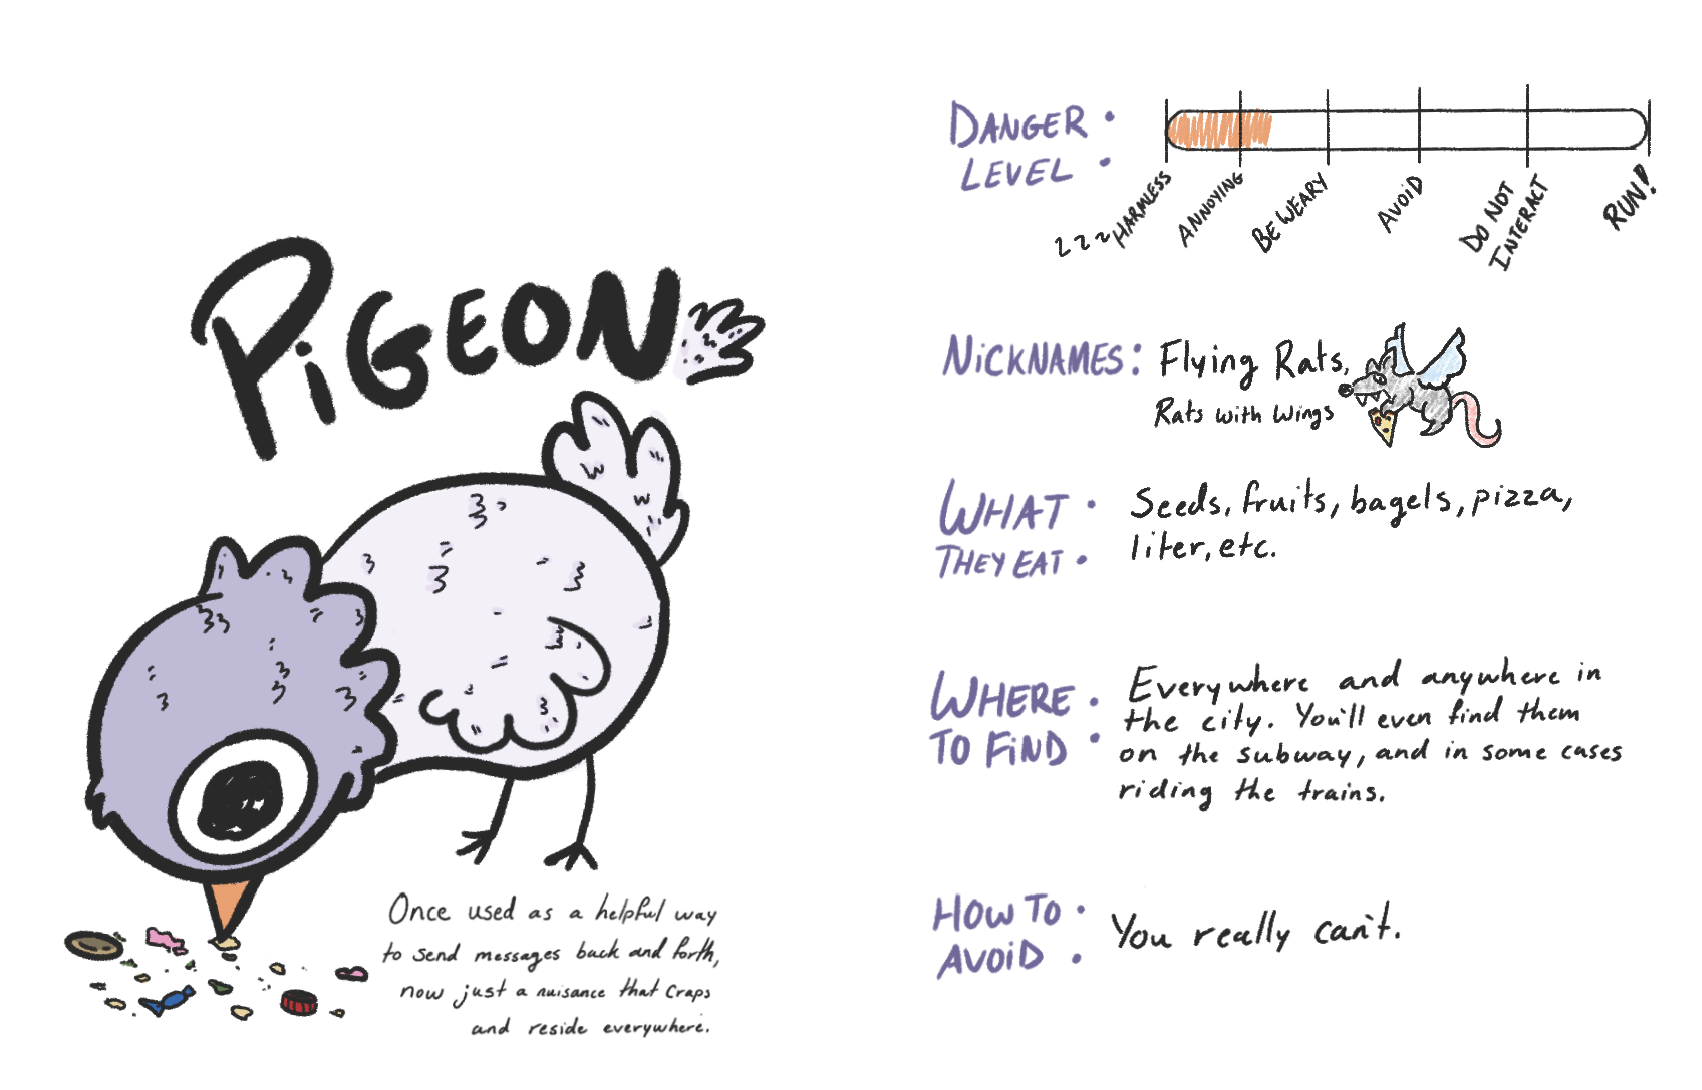 PiGEON
Once used as a helpful way
to send messages back and forth,
now just a nuisance that craps
and reside everywhere.
DANGER
LEVEL:
zzz HARMLESS
ANNOYING
BE WEARY
AVOiD
DO NOT
INTERACT
RUN!
NiCKNAMES: Flying Rats,
Rats with Wings
WHAT
THEY EAT:
Seeds, fruits, bagels, pizza,
liter, etc.
WHERE
TO FiND:
Everywhere and anywhere in
the city. You'll even find them
on the subway, and in some cases
riding the trains.
HOW TO
AVOiD:
You really can't.